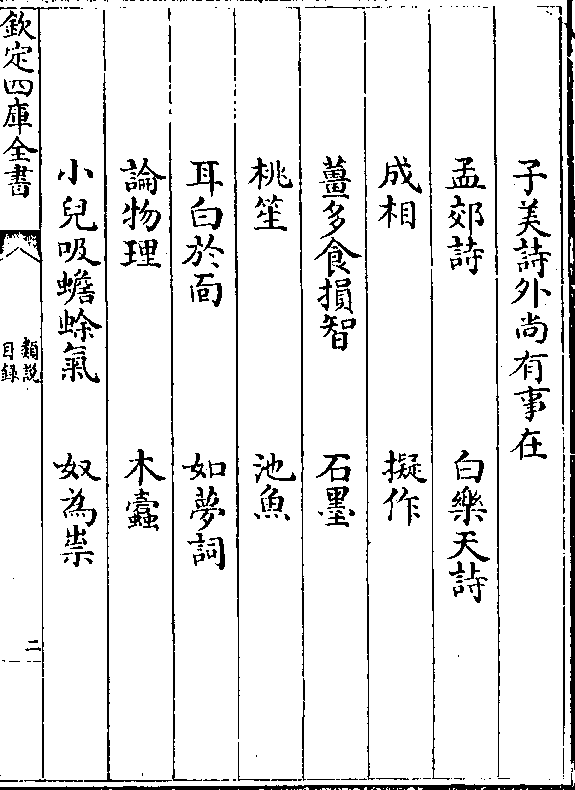 子美詩外尚有事在
孟郊詩 白樂天詩
成相 擬作
薑多食損智 石墨
桃笙 池魚
耳白於面 如夢詞
論物理 木蠹
小兒吸蟾蜍氣 奴為祟
欽定四庫全書
類說
目録
二